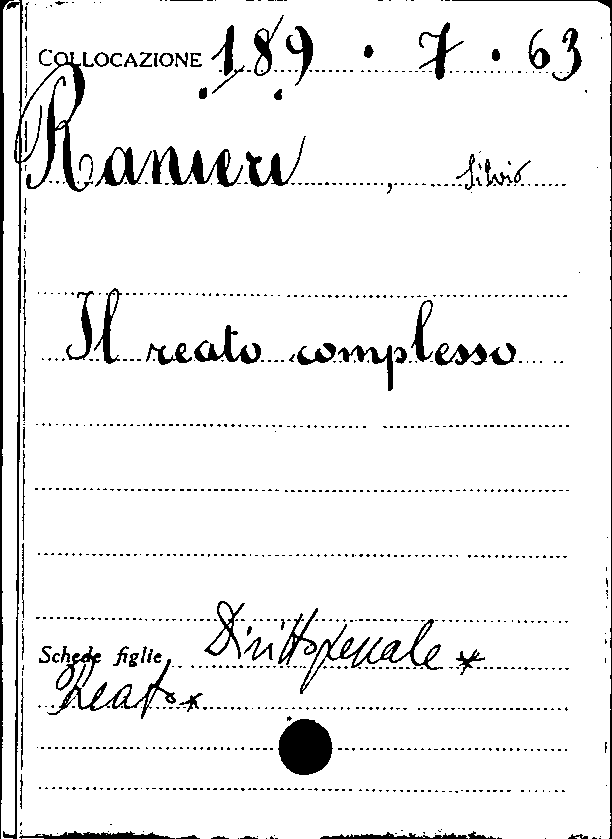 COLLOCAZIONE 189 . 7 . 63
Ranieri, Silvio
Il reato complesso
Schede figlie Diritto penale *
Reato *